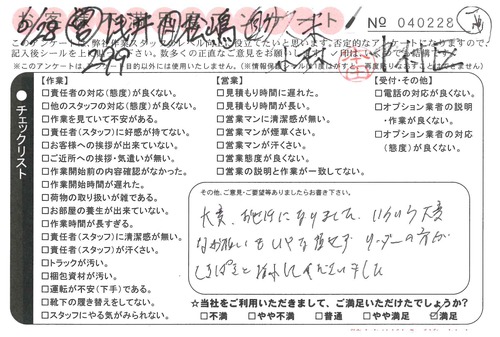 アンケート
No 040228
このアンケートは、弊社作業スタッフのレベル向上に役立てたいと思います。否定的なアンケートになりますので、
※このアンケートは
チェックリスト
【作業】
□責任者の対応(態度)が良くない。
□他のスタッフの対応(態度)が良くない。
□作業を見ていて不安がある。
□責任者(スタッフ)に好感が持てない。
□お客様への挨拶が出来ていない。
□ご近所への挨拶・気遣いが無い。
□作業開始前の内容確認がなかった。
□作業開始時間が遅れた。
□荷物の取り扱いが雑である。
□お部屋の養生が出来ていない。
□作業時間が長すぎる。
□責任者(スタッフ)に清潔感が無い。
□責任者(スタッフ)が汗くさい。
□トラックが汚い。
□梱包資材が汚い。
□運転が不安(下手)である。
□靴下の履き替えをしてない。
□スタッフにやる気がみられない。
【営業】
□見積もり時間に遅れた。
□見積もり時間が長い。
□営業マンに清潔感が無い。
□営業マンが煙草くさい。
□営業マンが汗くさい。
□営業態度が良くない。
□営業の説明と作業が一致してない。
【受付・その他】
□電話の対応が良くない。
□オプション業者の説明
・作業が良くない。
□オプション業者の対応
(態度)が良くない。
その他、ご意見・ご要望等ありましたらお書き下さい。
大変、お世話になりました。いろいろ大変
なお願いもいやな顔せず リーダーの方が
てきぱきと 対応してくださいました
☆当社をご利用いただきまして、ご満足いただけたでしょうか?
□不満 □やや不満 □普通 □やや満足 □満足